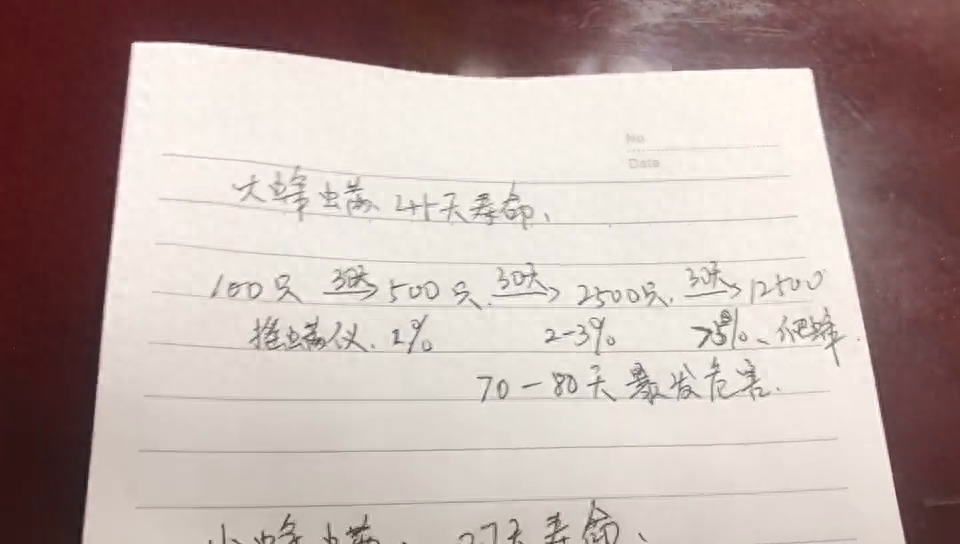 No
Date
大蜂螨、45天寿命、
100只 30天→ 500只、30天→ 2500只、30天→ 12500
推螨仪、1% 2-3% >5%、爬蜂.
70-80天 暴发危害.
小蜂螨、27天寿命、